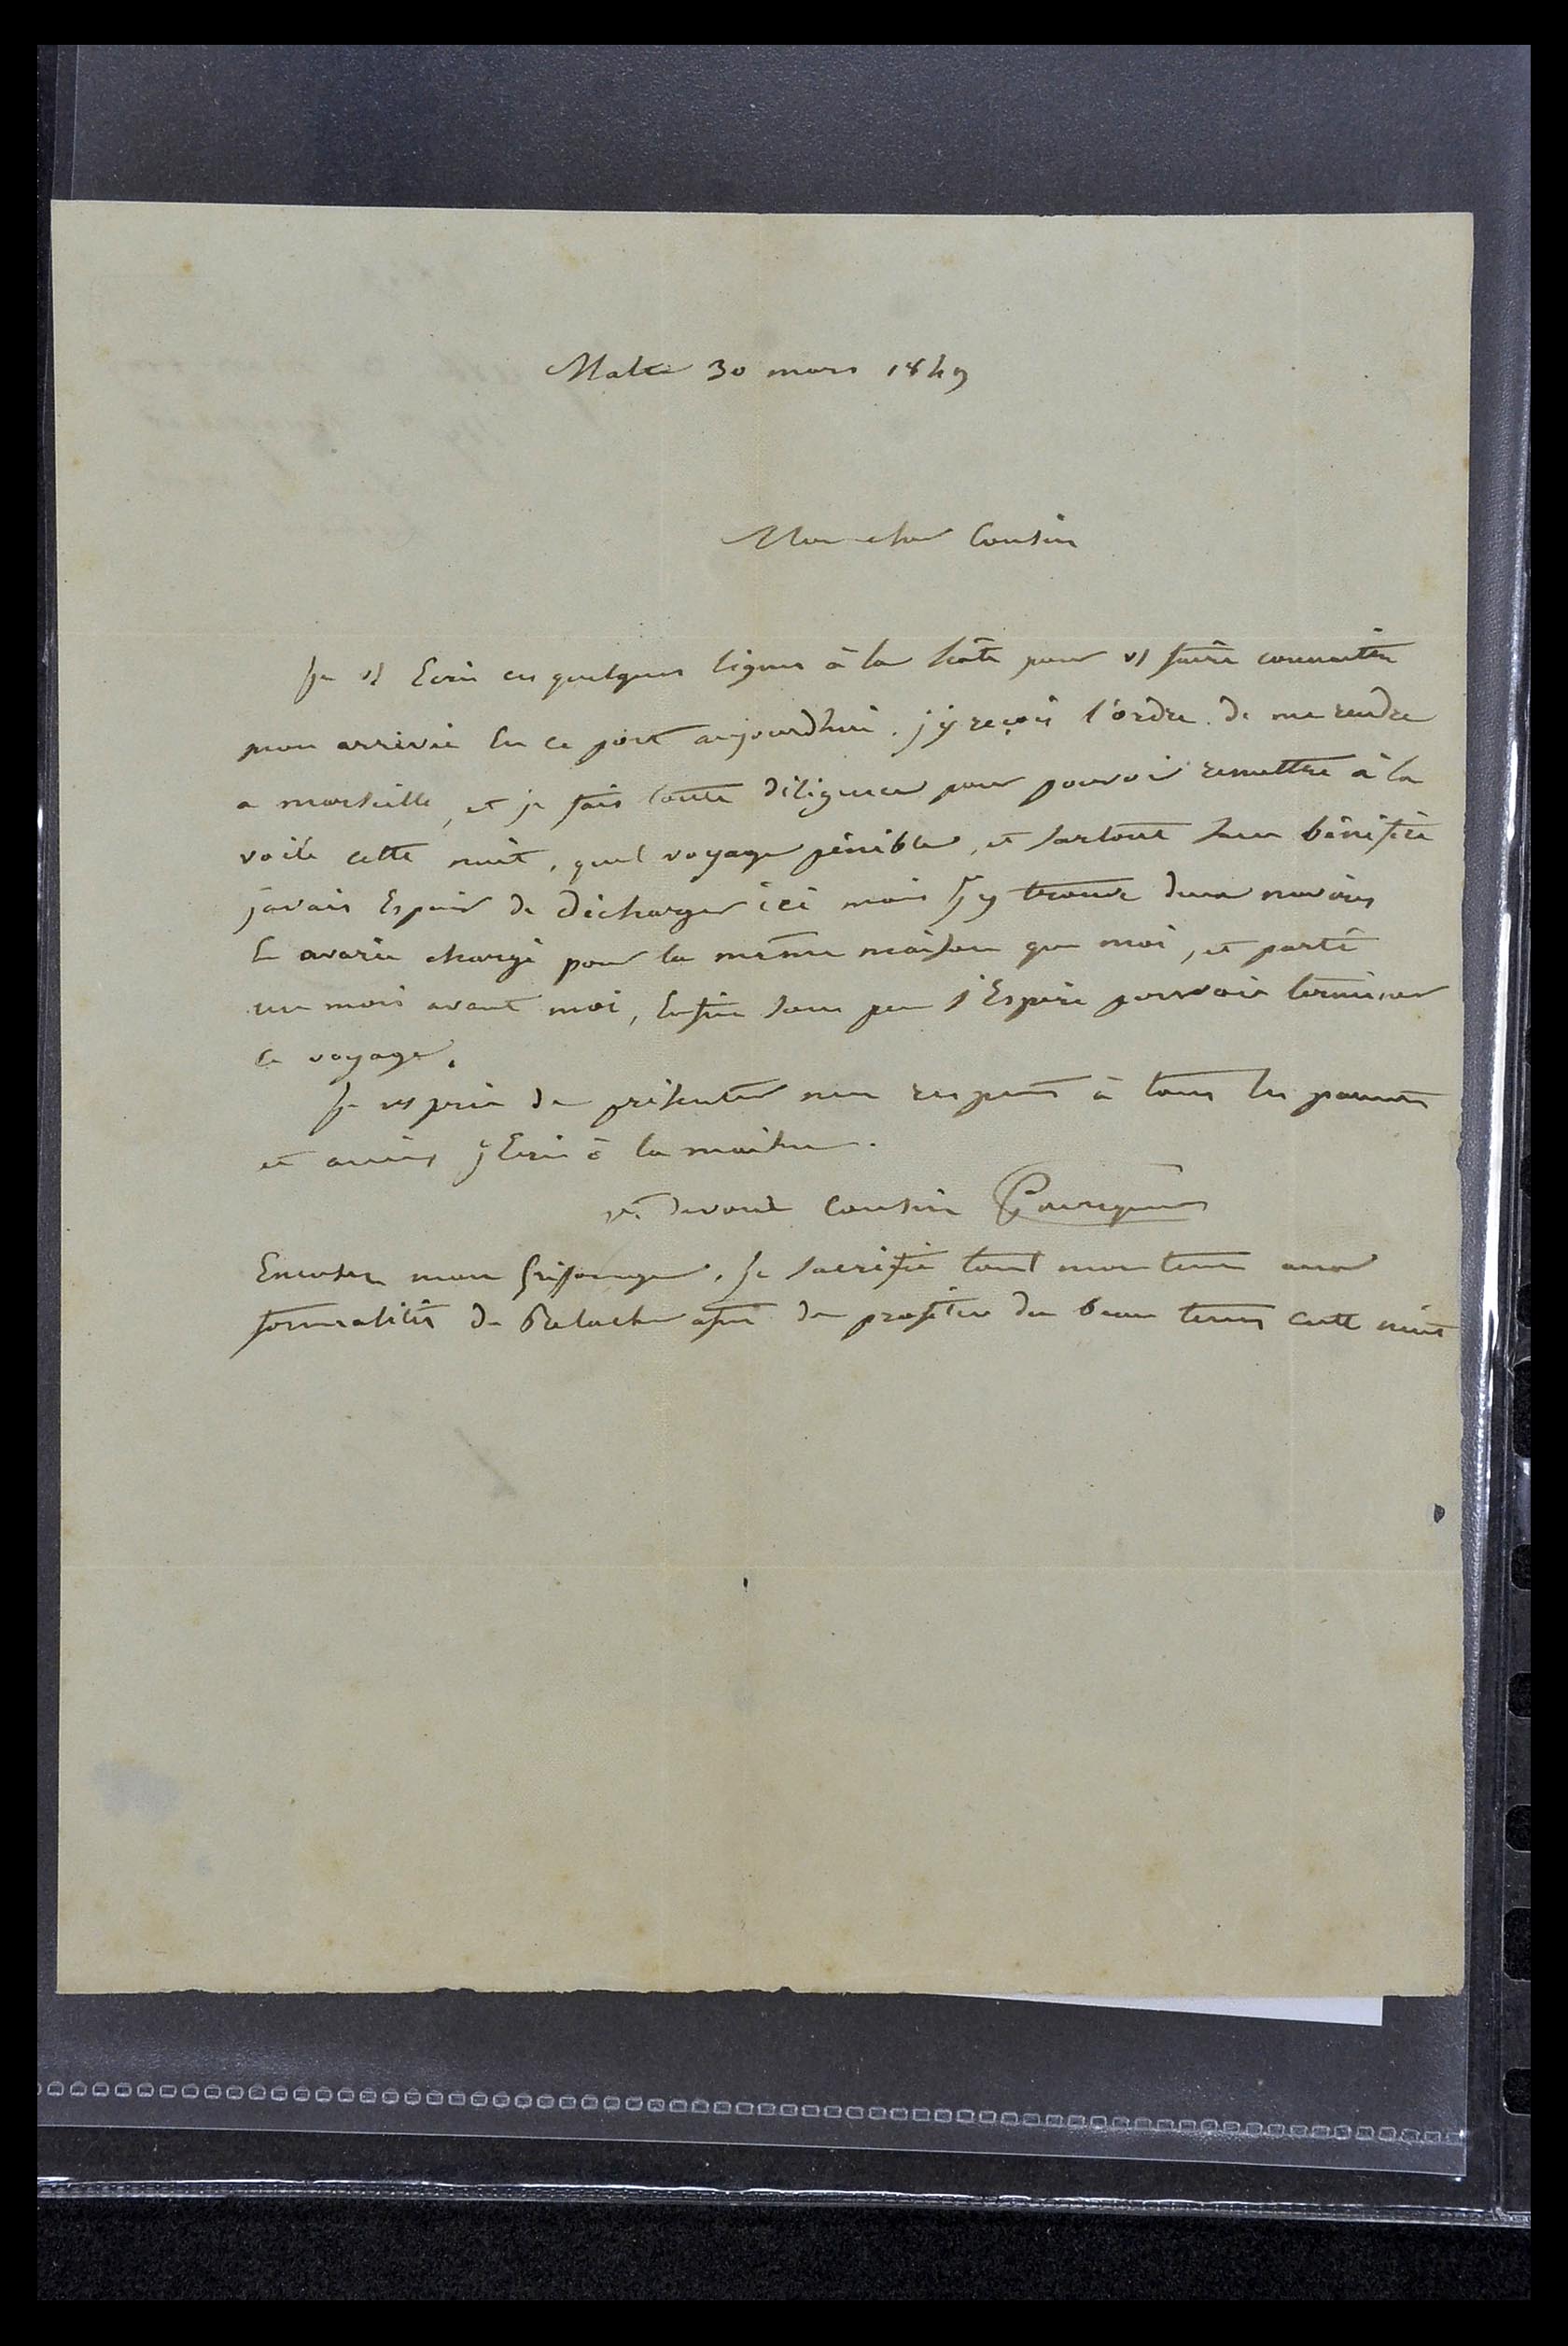 Malte 30 mars 1849
Mon cher Cousin
Je vs Ecris ces quelques lignes à la hâte pour vs faire connaitre
mon arrivée En ce port aujourdhui. j'y reçois l'ordre de me rendre
a marseille, et je fais toute diligence pour pouvoir remettre à la
voile cette nuit, quel voyage pénible, et surtout sans bénéfice
j'avais Espoir de décharger ici mais j'y trouve deux navires
En avarie chargé pour la même maison que moi, et parti
un mois avant moi, Enfin sous peu j'Espère pouvoir terminer
ce voyage.
Je vs prie de présenter mes respects à tous les parents
et amis, j'Ecris à la maison.
vt. devoué Cousin
Excuser mon griffonage. Je sacrifie tout mon tems aux
formalités de Relache afin de profiter du beau tems cette nuit